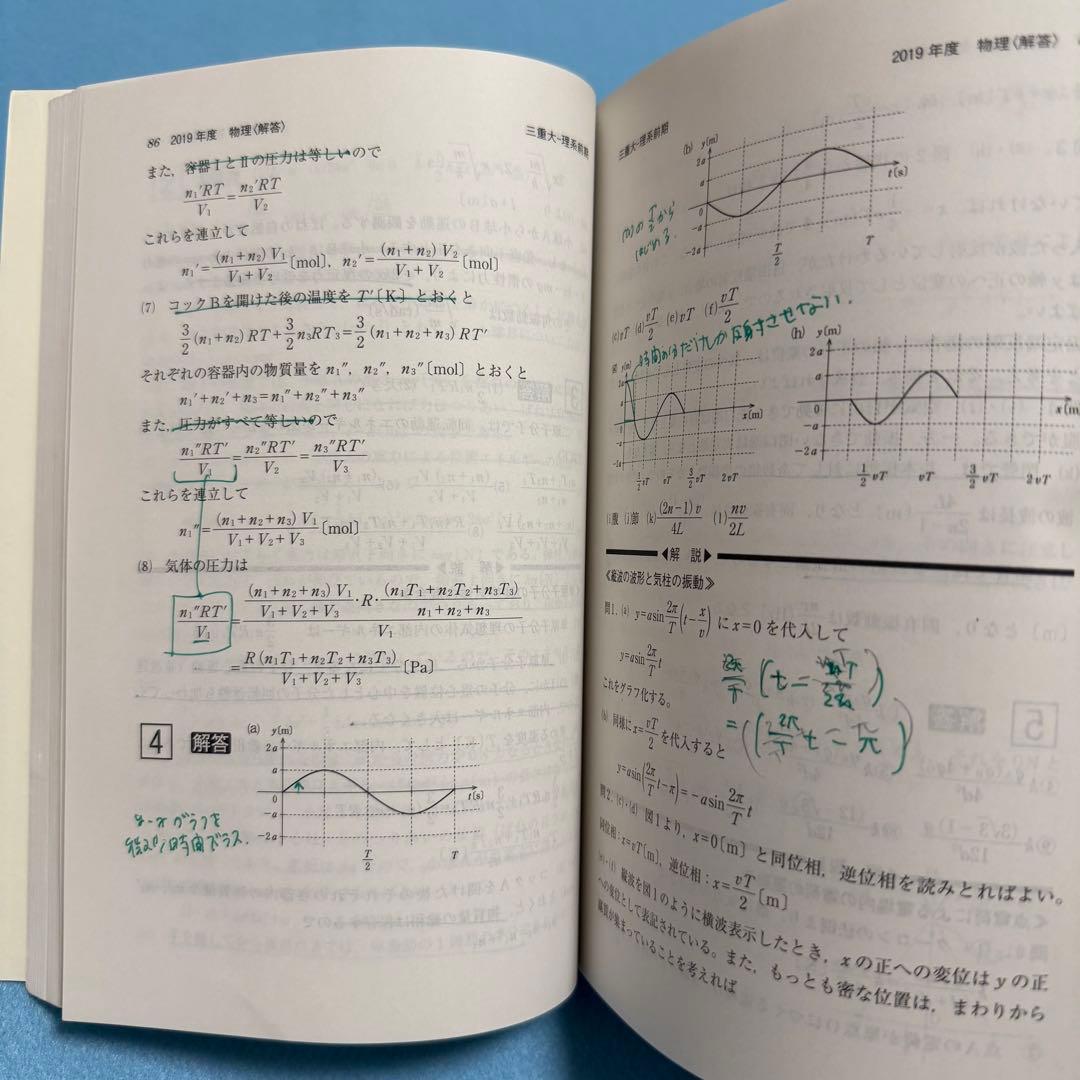 86 2019年度 物理〈解答〉
三重大-理系前期
また，容器ⅠとⅡの圧力は等しいので
n₁′RT/V₁=n₂′RT/V₂
これらを連立して
n₁′=(n₁+n₂)V₁/(V₁+V₂)〔mol〕，n₂′=(n₁+n₂)V₂/(V₁+V₂)〔mol〕
(7) コックBを開けた後の温度をT′〔K〕とおくと
3/2(n₁+n₂)RT+3/2n₃RT₃=3/2(n₁+n₂+n₃)RT′
それぞれの容器内の物質量をn₁″，n₂″，n₃″〔mol〕とおくと
n₁′+n₂′+n₃=n₁″+n₂″+n₃″
また，圧力がすべて等しいので
n₁″RT′/V₁=n₂″RT′/V₂=n₃″RT′/V₃
これらを連立して
n₁″=(n₁+n₂+n₃)V₁/(V₁+V₂+V₃)〔mol〕
(8) 気体の圧力は
n₁″RT′/V₁=((n₁+n₂+n₃)V₁/(V₁+V₂+V₃)・R・(n₁T₁+n₂T₂+n₃T₃)/(n₁+n₂+n₃))/V₁
=R(n₁T₁+n₂T₂+n₃T₃)/(V₁+V₂+V₃)〔Pa〕
4 解答 (a) y〔m〕
2a
a
0
-a
-2a
T/2
T
t〔s〕
2019年度 物理〈解答〉
三重大-理系前期
(b) y〔m〕
2a
a
0
-a
-2a
T/2
T
t〔s〕
(a)の T/2 から
はじめる.
(c)vT (d)vT/2 (e)vT (f)vT/2
(g) y〔m〕
2a
a
0
-a
-2a
1/2vT vT 3/2vT 2vT
x〔m〕
(h) y〔m〕
2a
a
0
-a
-2a
1/2vT vT 3/2vT 2vT
x〔m〕
(i)腹 (j)節 (k)(2n-1)v/4L (l)nv/2L
◀解 説▶
≪縦波の波形と気柱の振動≫
問1．(a) y=asin2π/T(t-x/v)にx=0を代入して
y=asin2π/T t
これをグラフ化する。
(b) 同様にx=vT/2を代入すると
y=asin(2π/T t-π)=-asin2π/T t
問2．(c)・(d) 図1より，x=0〔m〕と同位相，逆位相を読みとればよい。
同位相：x=vT〔m〕，逆位相：x=vT/2〔m〕
(e)・(f) 縦波を図1のように横波表示したとき，xの正への変位はyの正
への変位として表記されている。また，もっとも密な位置は，まわりから
媒質が集まっていることを考えれば